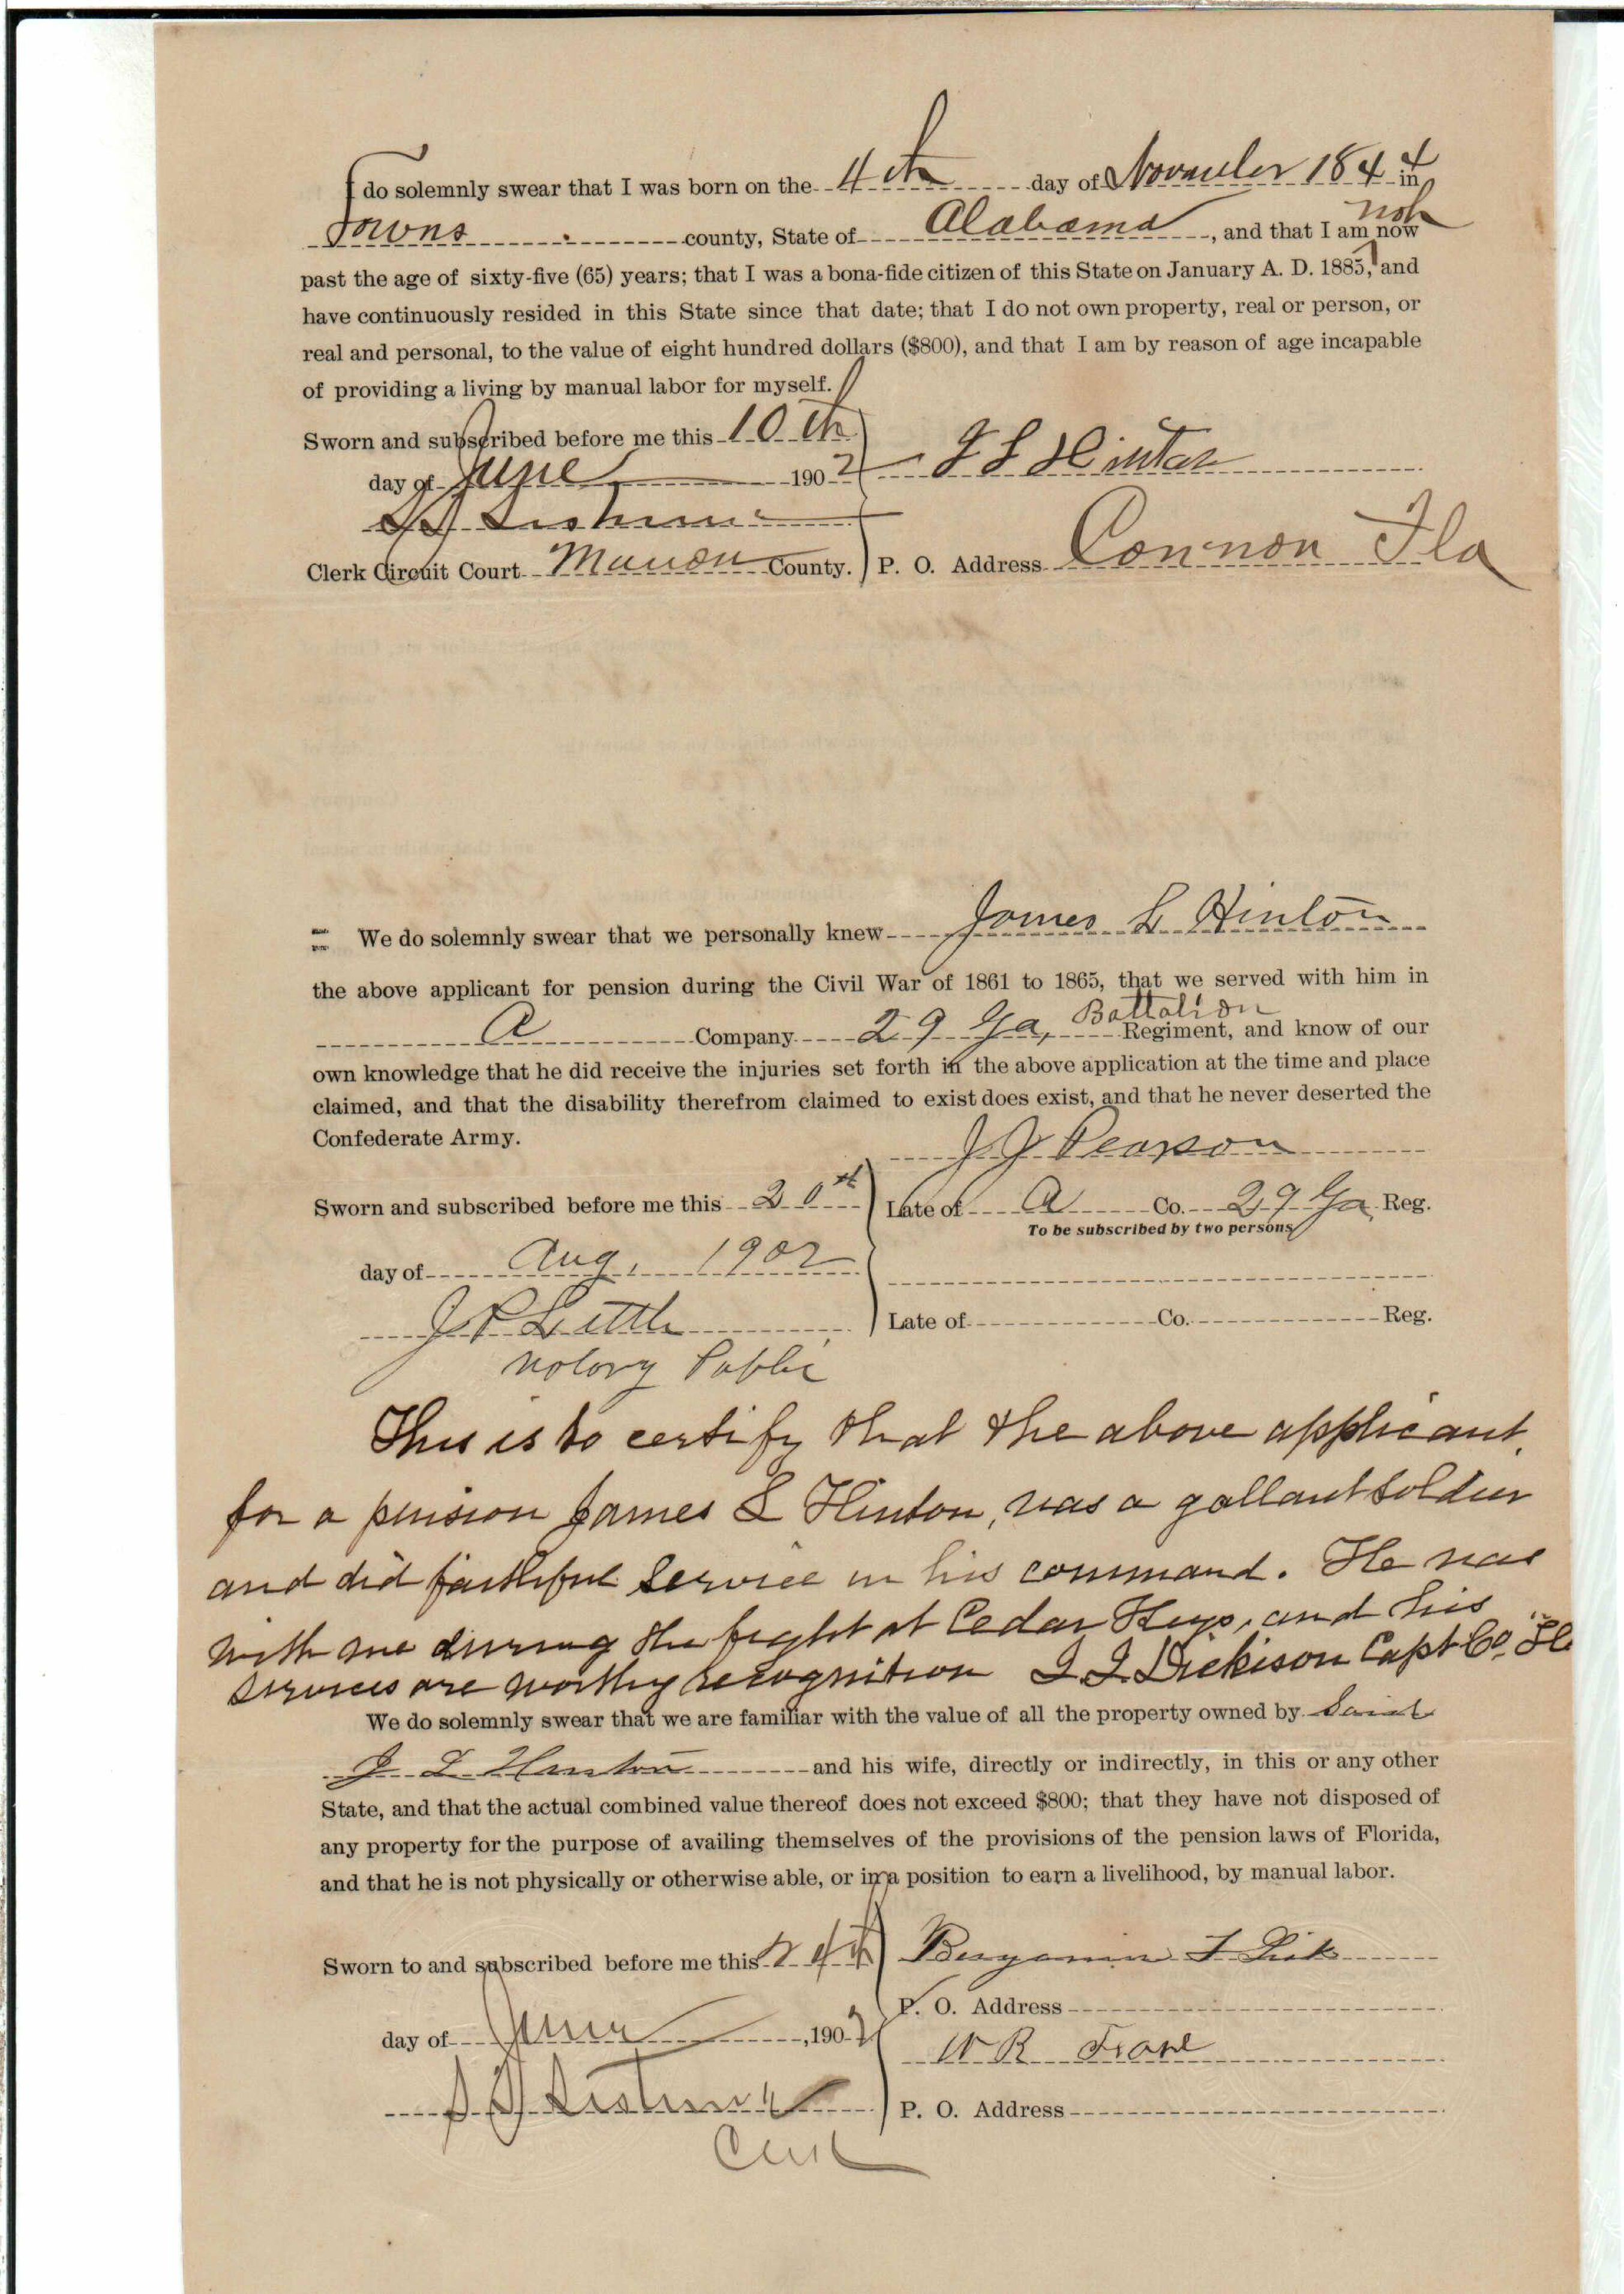 I do solemnly swear that I was born on the 4th day of November 1844 in
Towns county, State of Alabama, and that I am not now
past the age of sixty-five (65) years; that I was a bona-fide citizen of this State on January A. D. 1885, and
have continuously resided in this State since that date; that I do not own property, real or person, or
real and personal, to the value of eight hundred dollars ($800), and that I am by reason of age incapable
of providing a living by manual labor for myself.
Sworn and subscribed before me this 10th
day of June 1902 J L Hinton
Clerk Circuit Court Marion County. P. O. Address Connor Fla
We do solemnly swear that we personally knew James L Hinton
the above applicant for pension during the Civil War of 1861 to 1865, that we served with him in
A Company 29 Ga, Battalion Regiment, and know of our
own knowledge that he did receive the injuries set forth in the above application at the time and place
claimed, and that the disability therefrom claimed to exist does exist, and that he never deserted the
Confederate Army.
J J Pearson
Sworn and subscribed before me this 20th Late of A Co. 29 Ga. Reg.
To be subscribed by two persons
day of Aug. 1902
J P Little Late of Co. Reg.
Notory Public
This is to certify that the above applicant
for a pension James L Hinton, was a gallant soldier
and did faithful service in his command. He was
with me during the fight at Cedar Keys, and his
services are worthy recognition J. J. Dickison Capt Co.
We do solemnly swear that we are familiar with the value of all the property owned by Said
J L Hinton and his wife, directly or indirectly, in this or any other
State, and that the actual combined value thereof does not exceed $800; that they have not disposed of
any property for the purpose of availing themselves of the provisions of the pension laws of Florida,
and that he is not physically or otherwise able, or in a position to earn a livelihood, by manual labor.
Sworn to and subscribed before me this Benjamin F
P. O. Address
day of June, 1902
W R
P. O. Address
Clerk